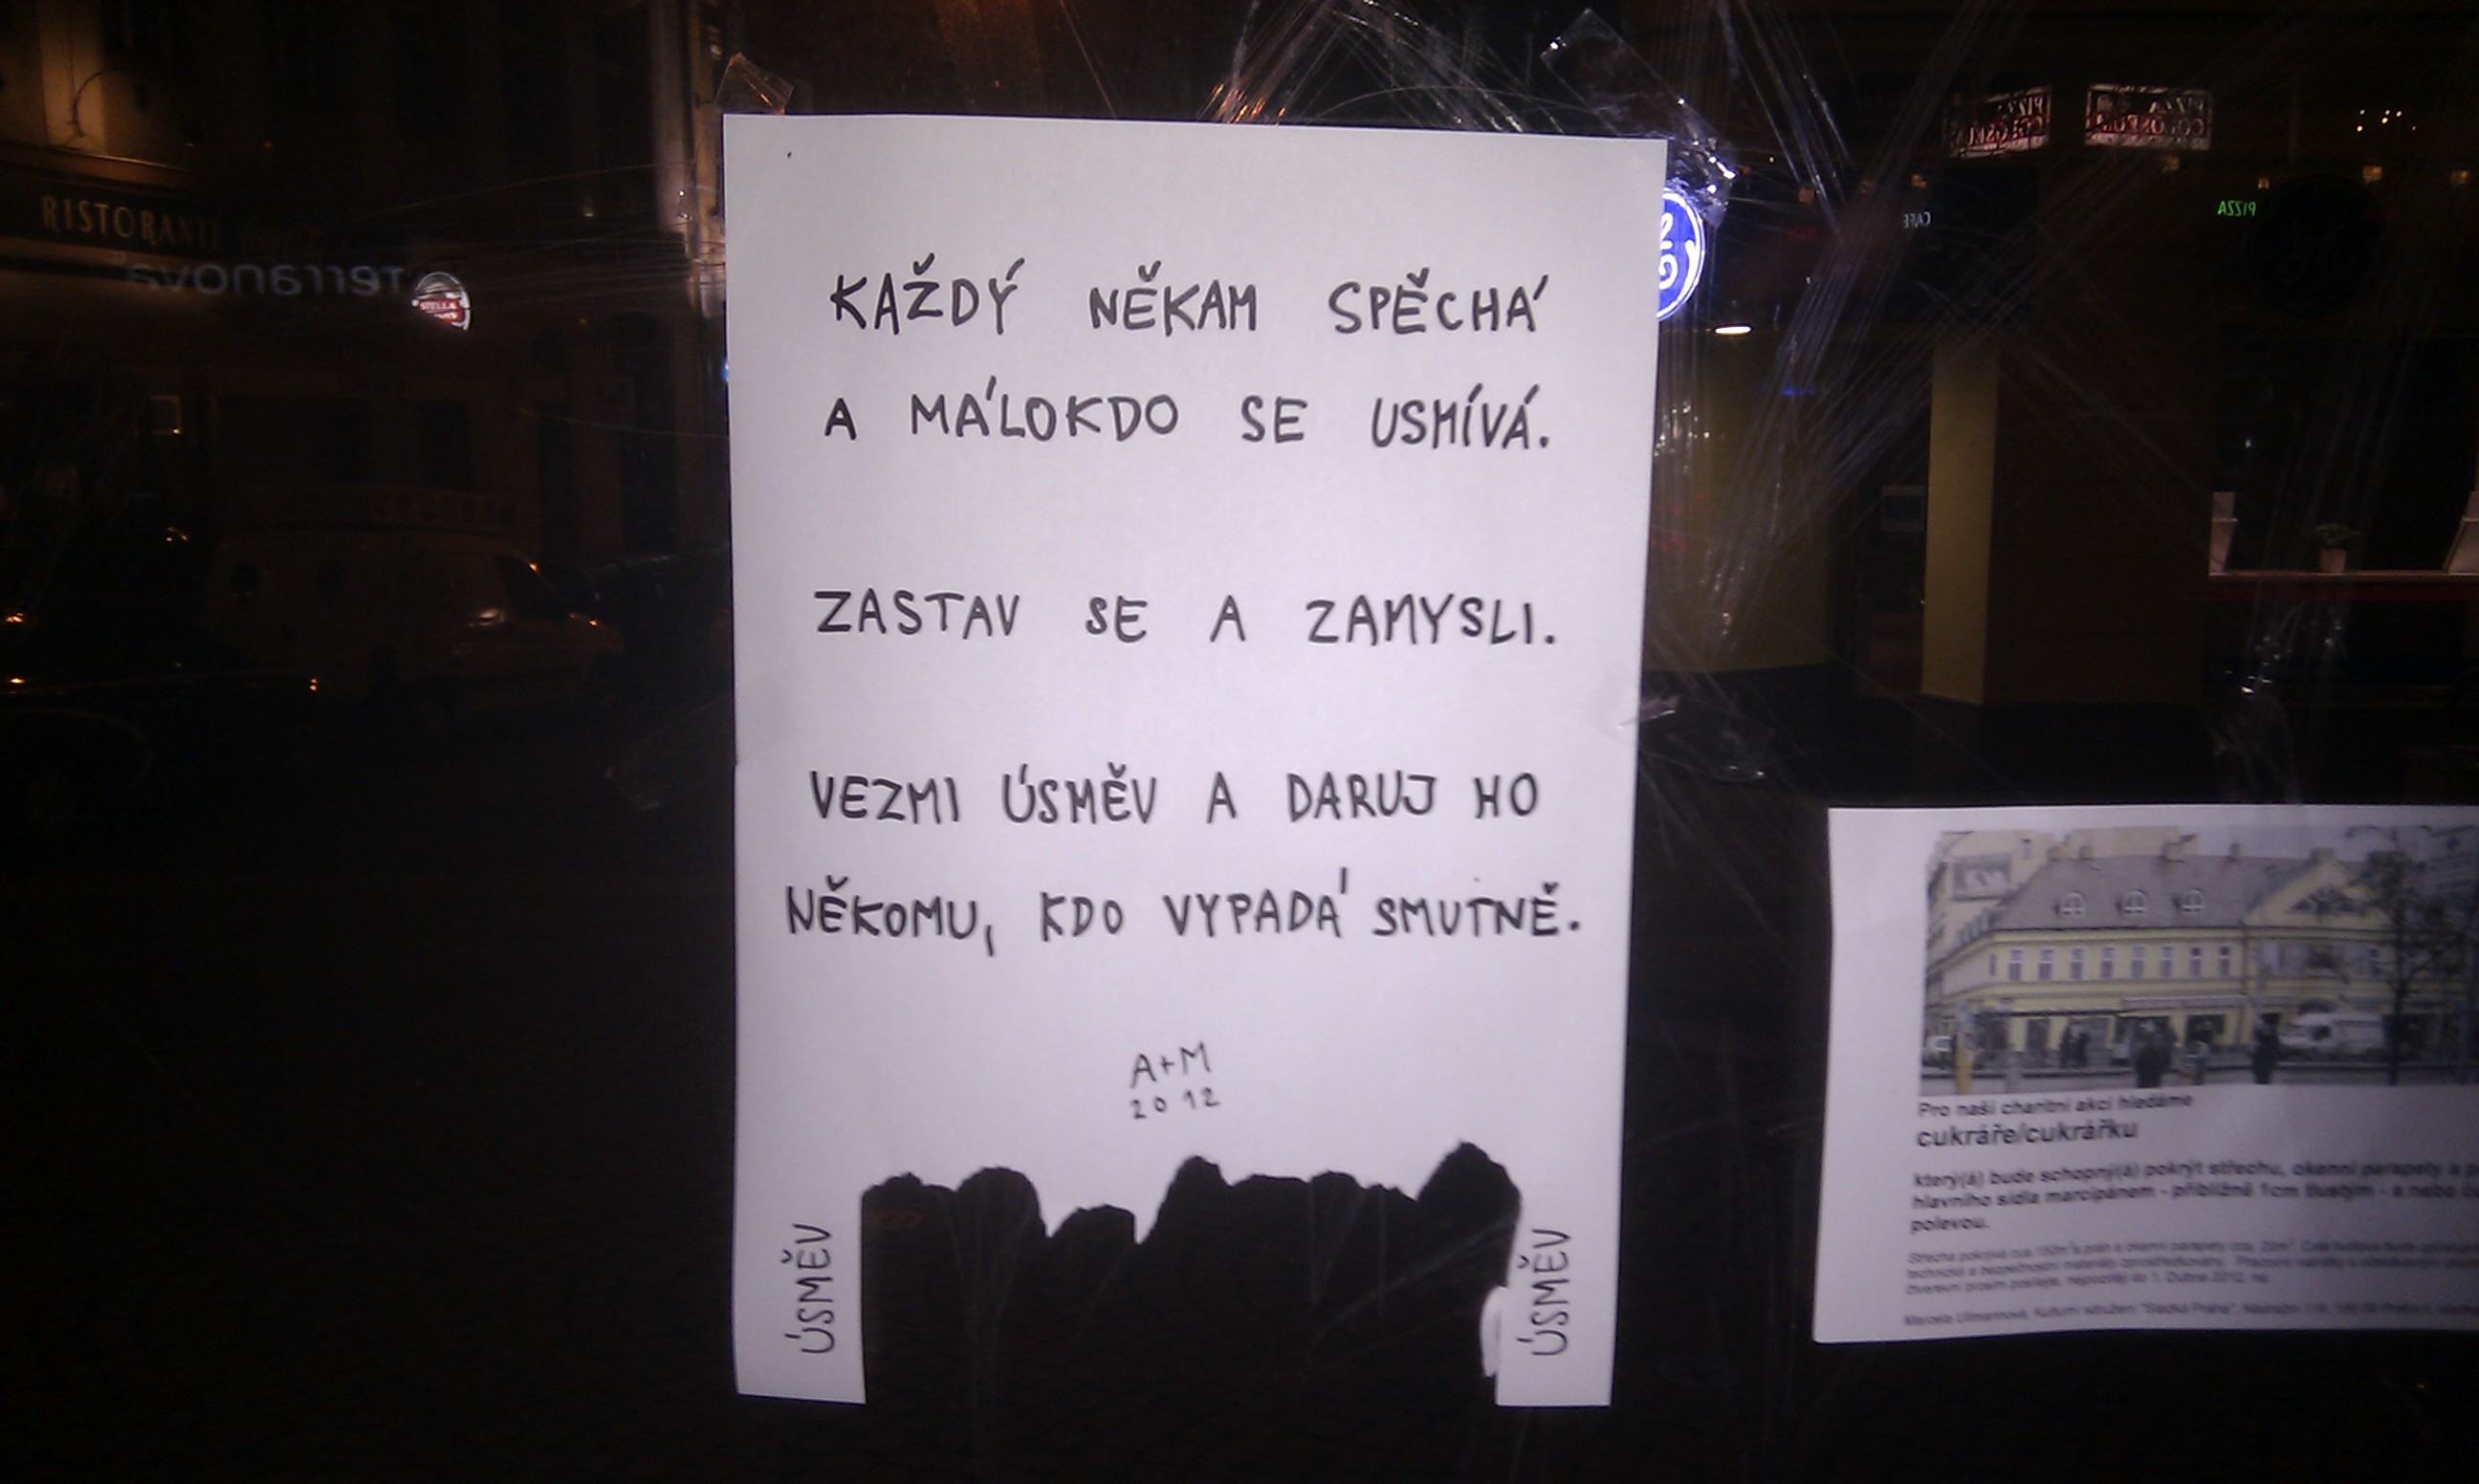 KAŽDÝ NĚKAM SPĚCHÁ
A MÁLOKDO SE USMÍVÁ.
ZASTAV SE A ZAMYSLI.
VEZMI ÚSMĚV A DARUJ HO
NĚKOMU, KDO VYPADÁ SMUTNĚ.
A+M
2012
ÚSMĚV
ÚSMĚV
RISTORANTE
Terranova
STELLA
PIZZA
COLOSEUM
PIZZA
COLOSEUM
CAFE
PIZZA
Pro naši charitní akci hledáme
cukráře/cukrářku
který(á) bude schopný(á) pokrýt střechu, okenní parapety a
hlavního sídla marcipánem - přibližně 1cm tlustým - a nebo
polevou.